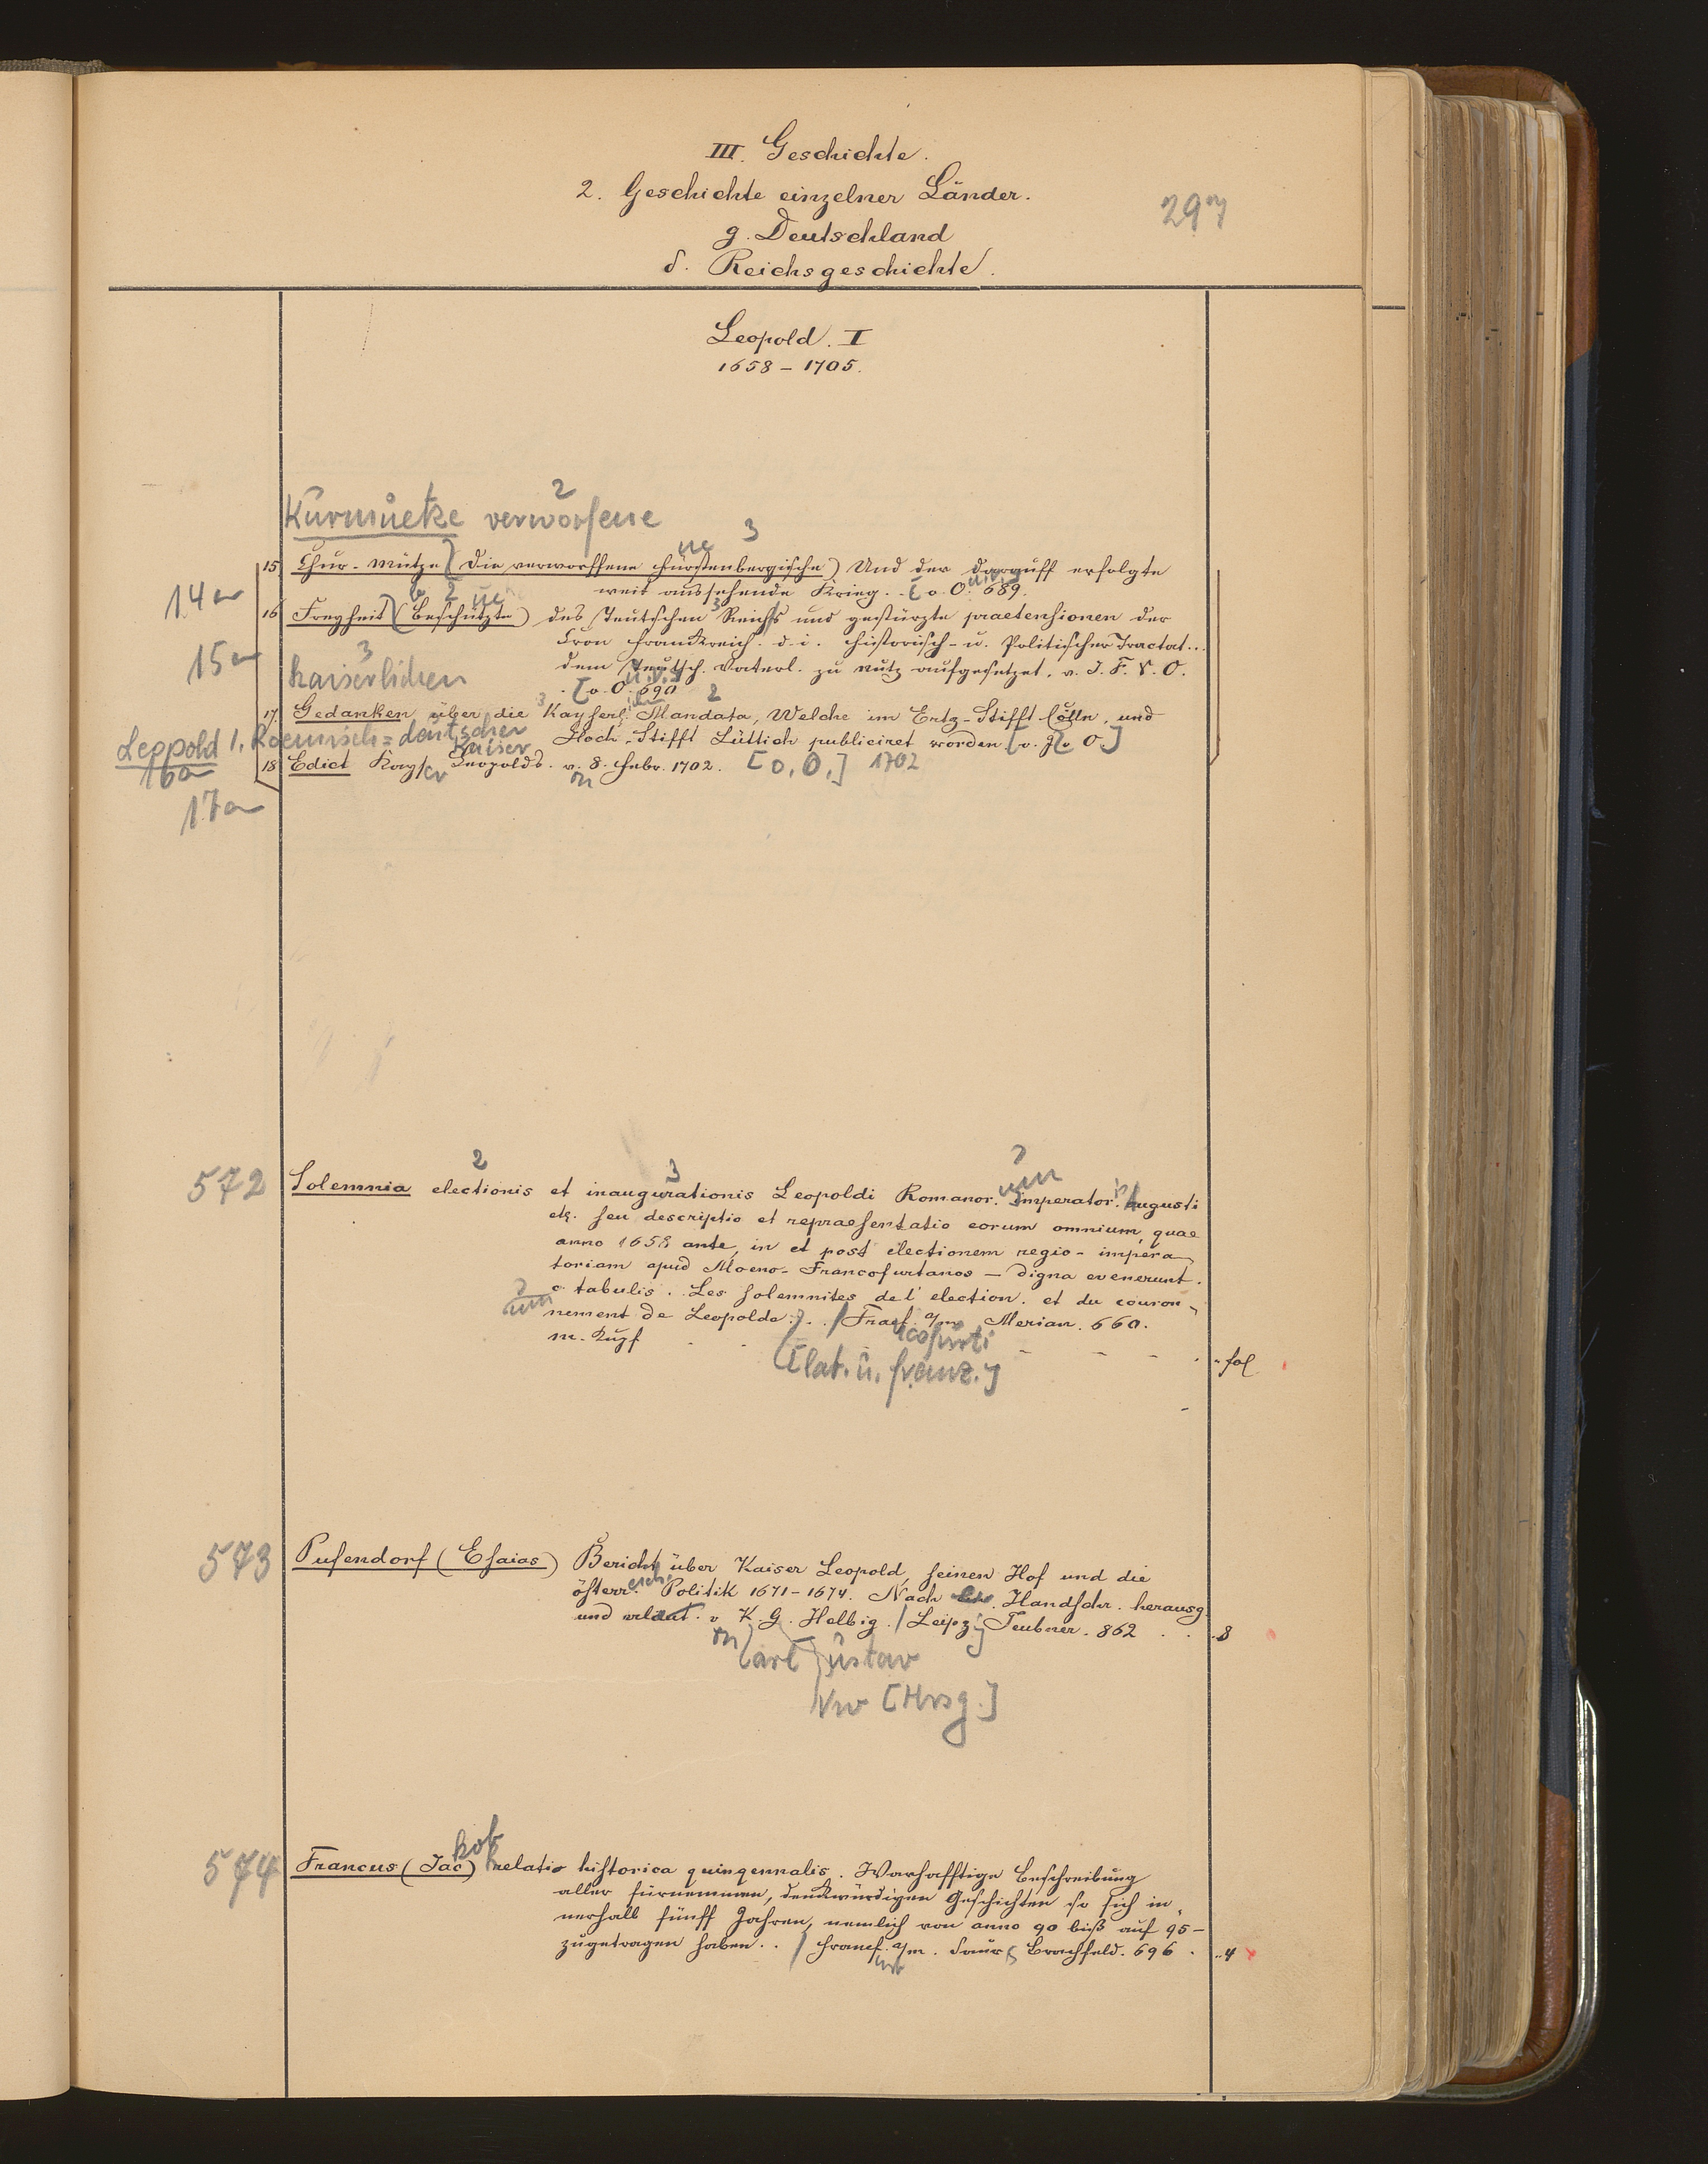 III. Geschichte.
2. Geschichte einzelner Länder.
297
g. Deutschland
δ. Reichsgeschichte.
Leopold. I
1658 – 1705.
2
Kurmuetze verworfene
3
ne
15 Chur-Mütze (Die verworffene Fürstenbergische) Und der darauff erfolgte
14a
weit aussehende Krieg. [o. O. 689.
b 2 ue
16 Freyheit (Beschützte) des Teutschen Reichs und gestürzte praetensionen der
3
Cron Franckreich. d. i. historisch- u. Politischer Tractat...
15a
3
kaiserlichen
dem Teutsch. Vaterl. zu Nutz aufgesetzet. v. J. F. V. O.
[o. O. 690
3 2
17. Gedanken über die Kayserl. Mandata, Welche im Ertz-Stifft Cölln, und
Leopold I. Roemisch=deutscher Kaiser
Hoch-Stifft Lüttich publiciret worden [o. J. o O.]
16a
18 Edict Kays. Leopolds. v. 8. Febr. 1702. [o. O.] 1702
17a
2 3
572 Solemnia electionis et inaugurationis Leopoldi Romanor. imperator. Augusti
etc. seu descriptio et repraesentatio eorum omnium, quae
anno 1658 ante, in et post electionem regio-impera-
toriam apud Moeno-Francofurtanos – digna evenerunt.
c tabulis. Les solemnites de l'election. et du couron-
nement de Leopolde.). / Francf. a/m Merian. 660.
cofurti
m. Kupf - - - - - fol
[lat. u. franz.]
573 Pufendorf (Esaias) Bericht über Kaiser Leopold, seinen Hof und die
österr. Politik 1671–1674. Nach Handschr. herausg.
und erläut. v K. G. Helbig. / Leipz Teubner. 862 . . 8
on Carl Gustav
Nw [Hrsg.]
kob
574 Francus (Jac) relatio historica quinqennalis. Warhafftige Beschreibung
aller fürnemmen, denckwürdigen Geschichten so sich in-
nerhalb fünff Jahren, nemlich von anno 90 biß auf 95 –
zugetragen haben.. / Francf. a/m. Saur, Brachfeld. 696 . .. 4